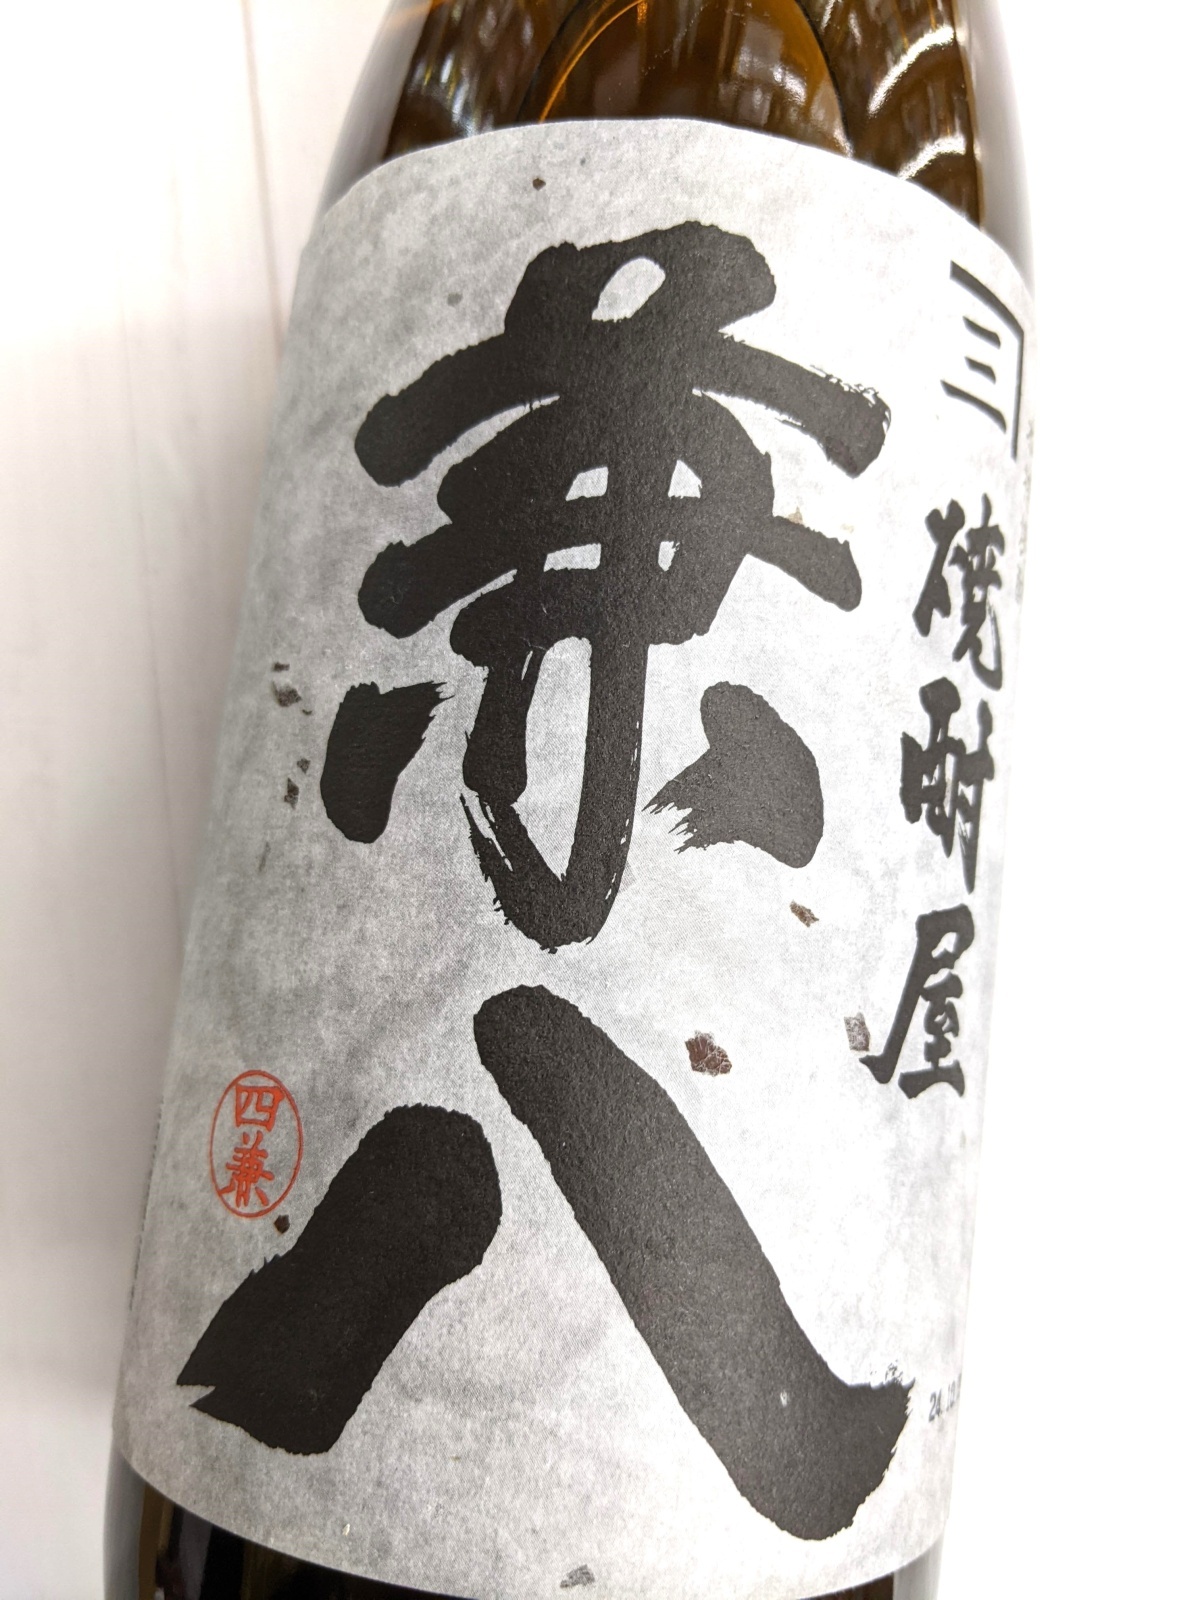 三
焼酎屋
兼八
四兼
24.12.